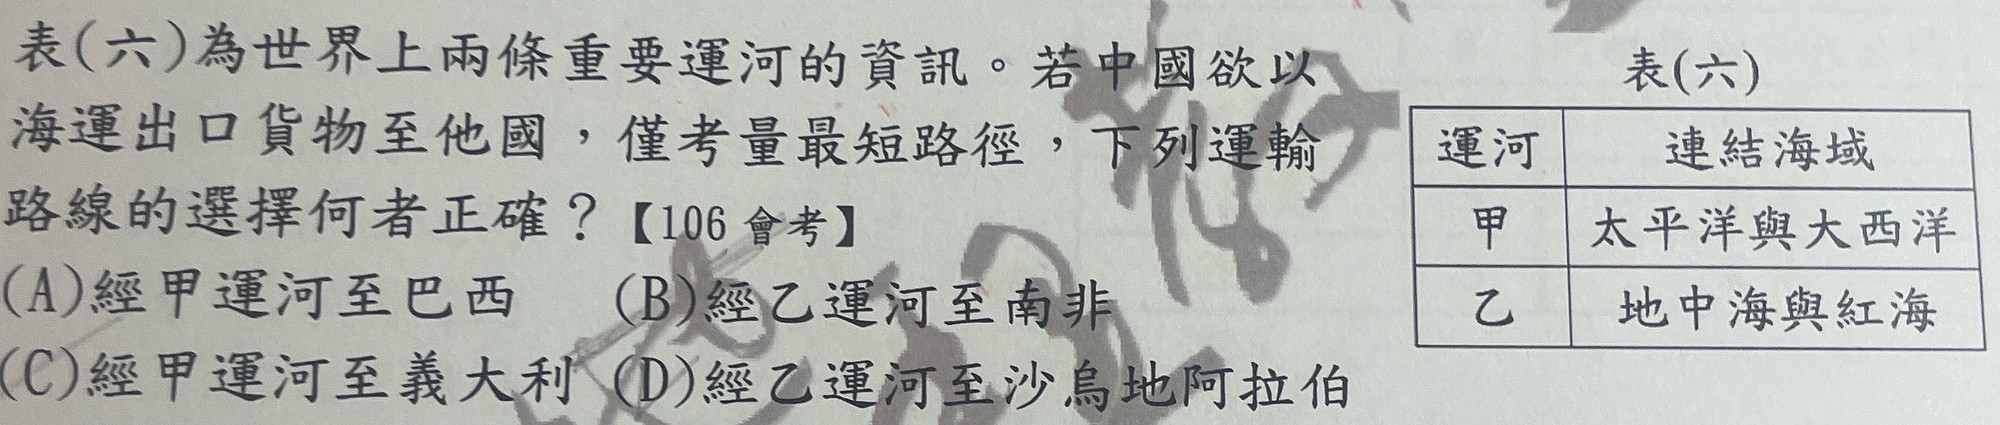 表(六)為世界上兩條重要運河的資訊。若中國欲以
海運出口貨物至他國，僅考量最短路徑，下列運輸
路線的選擇何者正確？【106 會考】
(A)經甲運河至巴西 (B)經乙運河至南非
(C)經甲運河至義大利 (D)經乙運河至沙烏地阿拉伯
表(六)
運河 連結海域
甲 太平洋與大西洋
乙 地中海與紅海